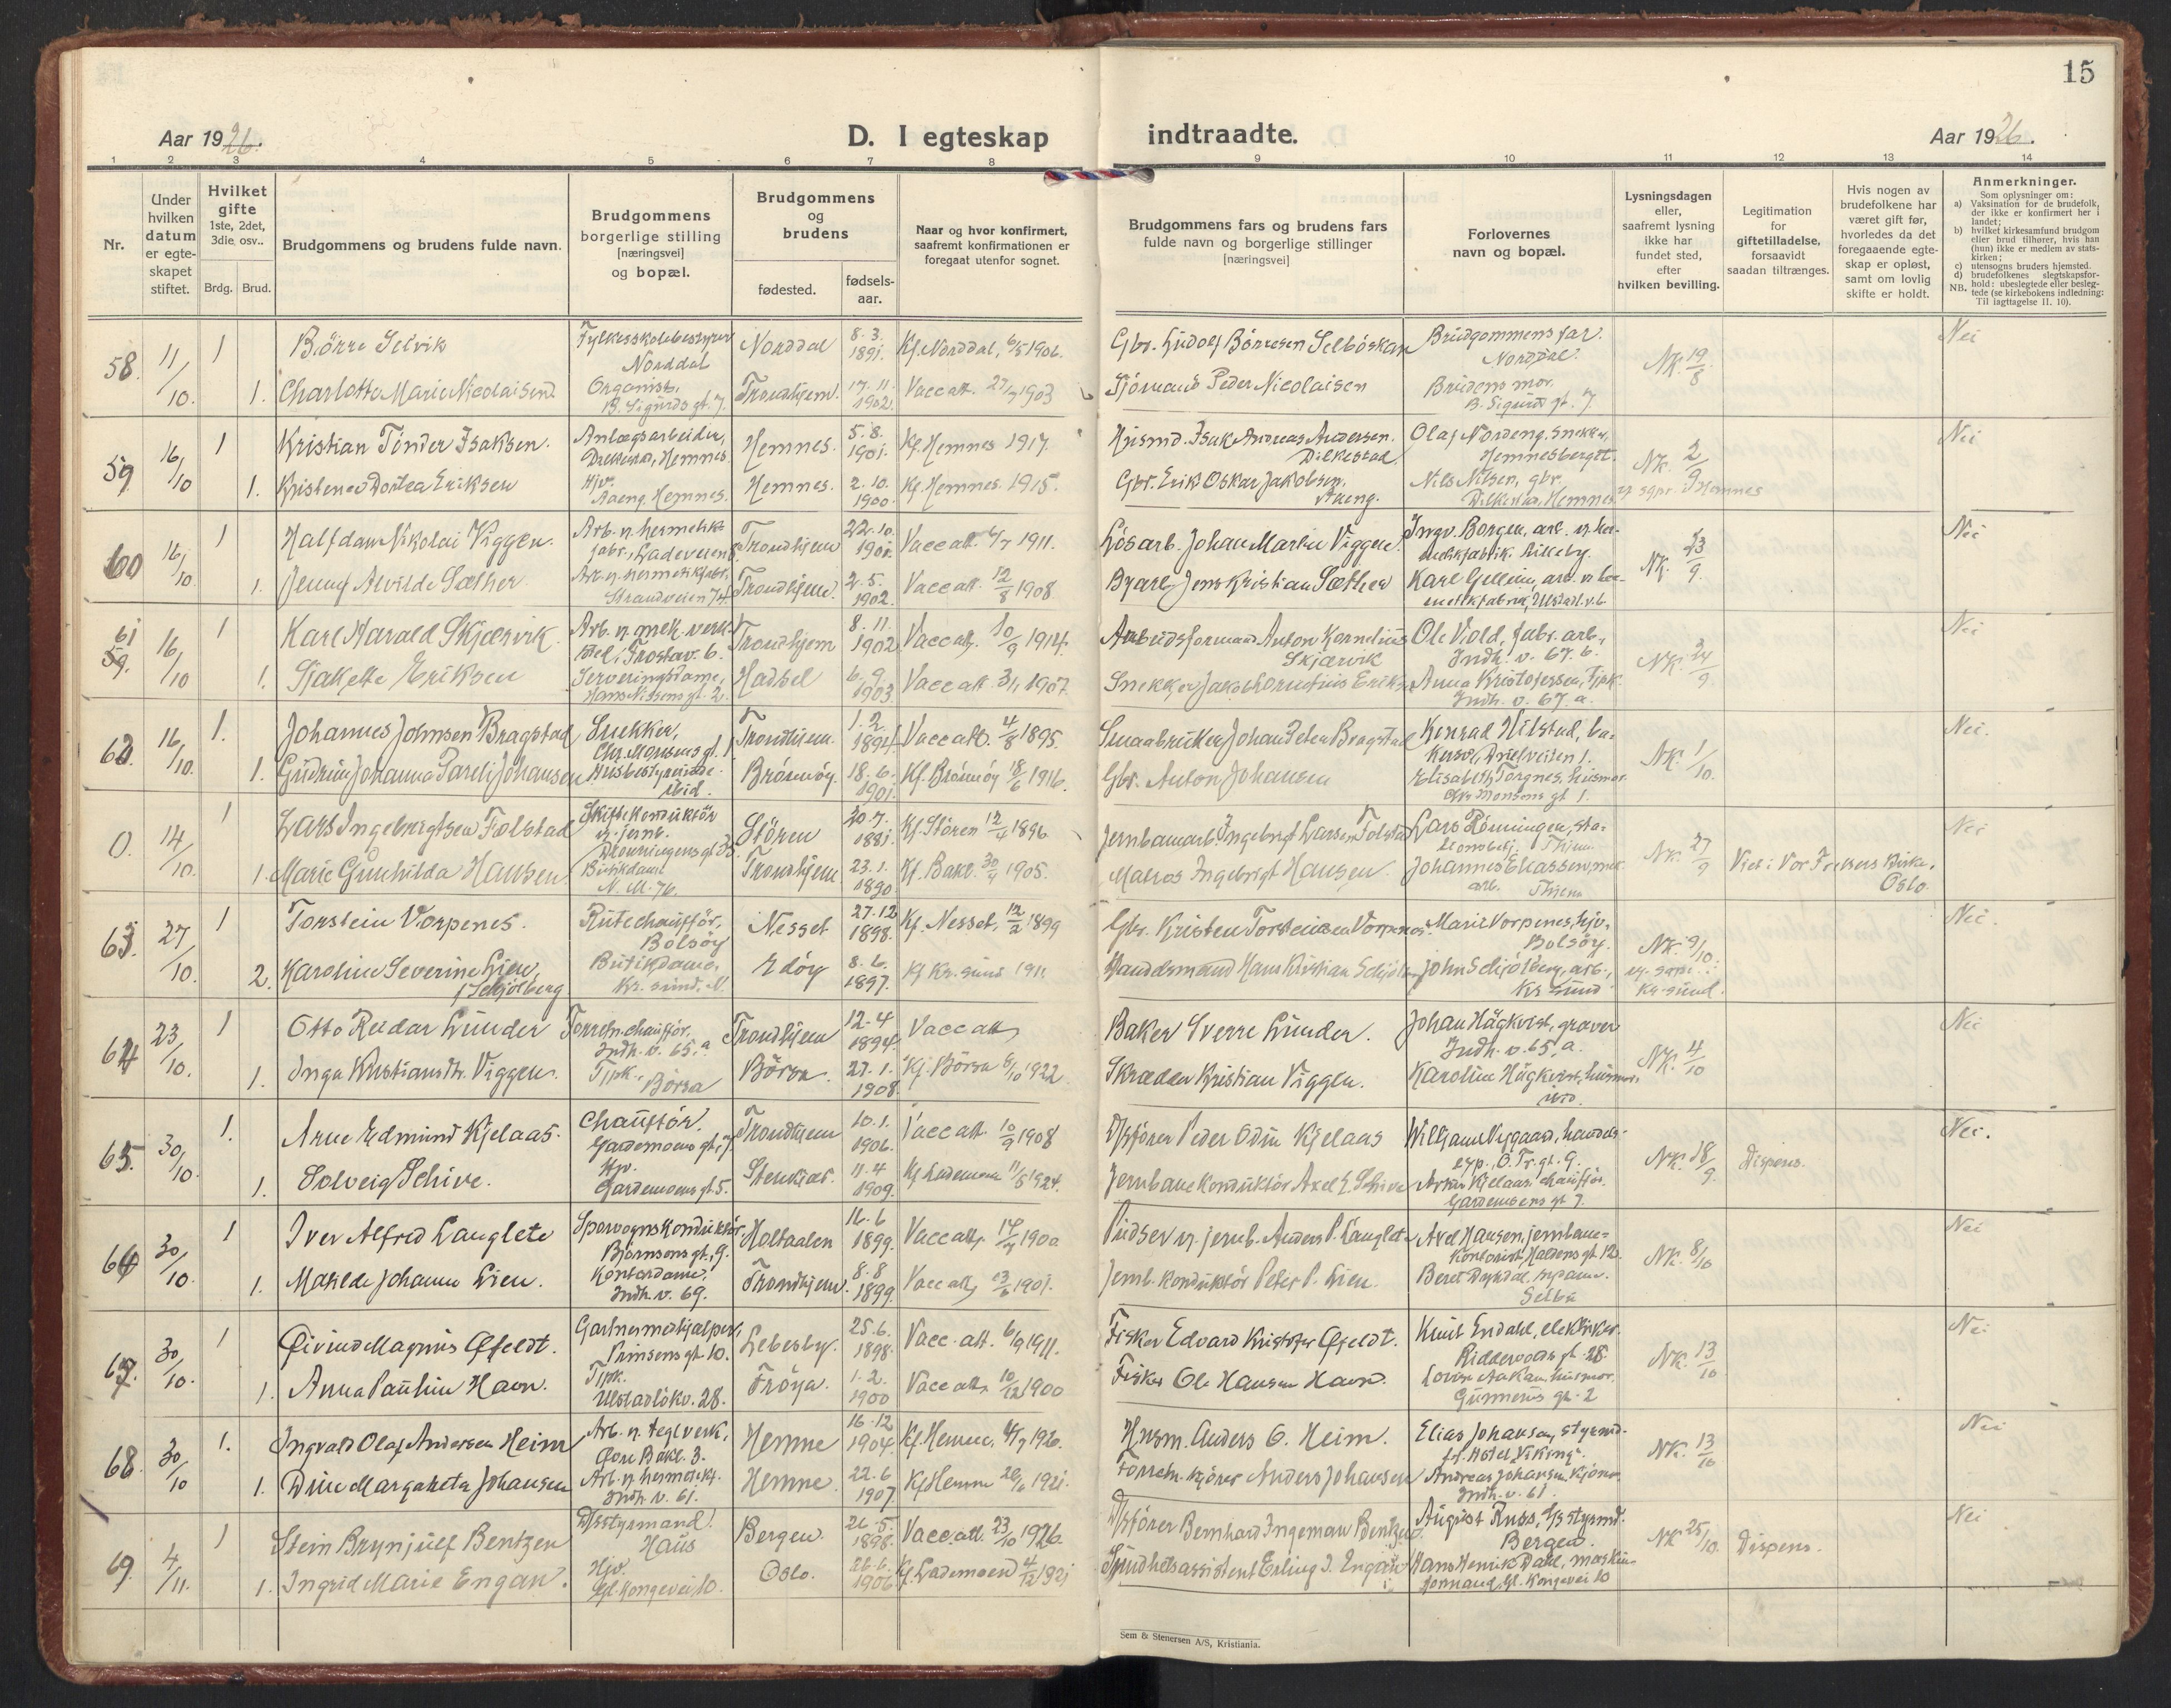 15
Aar 1926.
D. I egteskap
indtraadte.
Aar 1926.
1 2 3 4 5 6 7 8 9 10 11 12 13 14
Nr.
Under
hvilken
datum
er egte-
skapet
stiftet.
Hvilket
gifte
1ste, 2det,
3die, osv..
Brdg. Brud.
Brudgommens og brudens fulde navn.
Brudgommens
borgerlige stilling
[næringsvei]
og bopæl.
Brudgommens
og
brudens
fødested.
fødsels-
aar.
Naar og hvor konfirmert,
saafremt konfirmationen er
foregaat utenfor sognet.
Brudgommens fars og brudens fars
fulde navn og borgerlige stillinger
[næringsvei]
Forlovernes
navn og bopæl.
Lysningsdagen
eller,
saafremt lysning
ikke har
fundet sted,
efter
hvilken bevilling.
Legitimation
for
giftetilladelse,
forsaavidt
saadan tiltrænges.
Hvis nogen av
brudefolkene har
været gift før,
hvorledes da det
foregaaende egte-
skap er opløst,
samt om lovlig
skifte er holdt.
Anmerkninger.
Som oplysninger om:
a) Vaksination for de brudefolk,
der ikke er konfirmert her i
landet;
b) hvilket kirkesamfund brudgom
eller brud tilhører, hvis han
(hun) ikke er medlem av stats-
kirken;
c) utensogns bruders hjemsted.
d) brudefolkenes slegtskapsfor-
hold: ubeslegtede eller besleg-
NB. tede (se kirkebokens indledning:
Til iagttagelse II. 10).
58. 11/10. 1 Børre Selvik Fylkesskolebestyrer Norddal Norddal 8.3. 1891. Kf. Norddal, 1906. Gbr. Ludolf Børresen Selböskar Brudgommens far. Norddal. Nk. 19/8 Nei
1. Charlotte Marie Nicolaisen Organist, B. Sigurds gt. 7. Trondhjem. 17.11. 1902. Vacc att. 1903 Peder Nicolaisen Brudens mor. B. Sigurds gt. 7
59 16/10 1 Kristian Tinder Isaksen. Anlægsarbeider, Hemnes. Hemnes. 5.8. 1901. Kf. Hemnes 1917. Husmd. Isak Andreas Andersen. Dilkestad. Olaf Nordeng, snekker, Hemnesberget. Nk. 2/9 Nei
1. Dortea Eriksen Hjv. Hemnes. Hemnes. 2.10. 1900 Kf. Hemnes. 1915. Gbr. Erik Oskar Jakobsen, Nils Nilsen, gbr. Hemnes Hemnes
60 16/10 1 Halfdan Nikolai Viggen. Arb. v. hermetikk- fabr., Ladeveien Trondhjem 22.10. 1901. Vacc att. 1911. Løsarb. Johan Martin Viggen. Ingv. Borgen, arb. Nk. 23/9. Nei
1. Jenny Alvilde Sæther. Arb. v. hermetikfabr., Strandveien 74. Trondhjem. 2.5. 1902. Vacc att. 12/8 1908 Byarb. Jens Kristian Sæther Karl
61 59. 16/10 1 Karl Harald Skjærvik. Arb. v. mek. verk- Trondhjem 8.11. 1902 Vacc att. 10/9 1914. Arbeidsformand Anton Kornelius Skjærvik Ole Vold, fabr. arb., Indh. v. 67. b. Nk. 24/9. Nei
1. Sjakette Eriksen Serveringsdame, Hans Nissens gt. 2. Hadsel 6.9. 1903 Vacc att. 1907. Snekker Jakob Anna Kristofersen, Tjpk. Indh. v. 67. a.
62. 16/10. 1. Johannes Johnsen Bragstad Snekker, Chr. Monsens gt. 1. Trondhjem. 1.2. 1894 Vacc att. 4/8 1895. Smaabruker Johan Peter Bragstad Konrad Hilstad, Nk. 1/10. Nei.
1. Gudrun Johanna Johansen Husbestyrerinde. ibid. Brønnøy. 18.6. 1901. Kf. Brønnøy 18/6 1916. Gbr. Anton Johansen Elisabeth Torgnes, husmor. Chr. Monsens gt 1.
0. 14/10. 1 Lars Ingebrigtsen Folstad Skiftekonduktør v. jernb. Støren 20.7. 1881. Kf. Støren 12/4 1896. Jernbanearb. Ingebrigt Larsen Folstad Lars Rønningen, Nk. 27/9 Nei
1. Marie Gunhilda Hansen. Butikdame N. Al. 76. Trondhjem. 23.1. 1890. Kf. Bakl. 30/4 1905. Ingebrigt Hansen. Johannes Eliassen, arb. Thjem Viet i Vor Frelsers Kirke, Oslo.
63. 27/10. 1 Torstein Vorpenes. Rutechauffør, Bolsøy Nesset 27.12 1898. Kf. Nesset, 1899 Gbr. Kristen Torsteinsen Vorpenes Marit Vorpenes, hjv. Bolsøy. Nk. 9/10. Nei.
2. Karoline Severine Lien, f. Schjølberg Butikdame, Kr.sund. N. Edøy 8.6. 1897. Kf. Kr. sund 1911 Handelsmand Hans Kristian John Schjølberg, arb., Kr sund Kr. sund.
64 23/10. 1 Otto Reidar Lunder Forretn.chauffør, Indh. v. 65. a. Trondhjem 12.4 1894. Vacc att. Baker Sverre Lunder. Johan Hägkvist, graver Indh. v. 65, a. Nk. 4/10 Nei
1. Inga Kristiansdtr. Viggen. Tjpk. Børsa Børsa. 27.1. 1908. Kf. Børsa 8/10 1922. Skrædder Kristian Viggen. Karoline Hägkvist, husmor, ibid.
65. 30/10. 1. Arne Edmund Kjelaas. Chauffør. Gardemoens gt. 7. Trondhjem 10.1. 1906. Vacc att. 10/9 1908 D/sfører Peder Odin Kjelaas Vilhjam Vejgaard, handels- exp., Ø. Tr. gt. 9. Nk. 18/9. Dispens. Nei.
1. Solveig Schive. Hjv. Gardemoens gt. 5. Stenkjær. 11.4 1909. Kf. Lademoen 11/5 1924. Jernbanekonduktør Axel E. Schive Arthur Kjelaas chauffør. Gardemoens gt 7.
66 30/10. 1 Iver Alfred Langlete Sporvognskonduktør. Bjørnsons gt. 9. Holtaalen 16.6 1899. Vacc att. 1900 Pudser v. jernb. Anders P. Langlete Axel Hansen, jernbane- kontorist, Haldens gt. 12. Nk. 8/10 Nei
1. Matilde Johanne Lien. Kontordame, Indh. v. 69. Trondhjem. 8.8 1899. Vacc att. 1901. Jernb. konduktør Peter P. Lien. Beret Dyrdal, Selbu
67. 30/10. 1 Øivind Magnus Øfeldt. Gartnermedhjælper, Prinsens gt. 10. Lebesby. 25.6. 1898. Vacc. att. 6/9 1911. Fisker Edvard Kristofer Øfeldt. Knut Endahl, elektriker. Ridderwolds gt. 28. Nk. 13/10 Nei
1. Anna Pauline Havn. Tjpk. Ulstadløkv. 28. Frøya. 1.2. 1900 Vacc att. 10/12 1900 Fisker Ole Hansen Havn. husmor. Gunnerus gt. 2
68. 30/10 1. Ingvald Olaf Andersen Heim Arb. v. teglverk, Øvre Bakl. 3. Hemne 16.12 1904. Kf. Hemne, 1920. Husm. Anders O. Heim. Elias Johansen, styrmd. Hotel Viking. Nk. 13/10 Nei
1. Dine Margareta Johansen Arb. v. hermetikf. Indh. v. 61. Hemne. 22.6 1907 Kf. Hemne 1921. Forretn. kjører Anders Johansen Andreas Johansen, Kjører, Indh. v. 61.
69. 4/11. 1 Stein Brynjulf Bentzen D/sstyrmand. Haus Bergen. 26.5. 1898. Vacc. att. 23/10 1926. D/sfører Bernhard Ingeman Bentzen August Russ, d/sstyrmd. Bergen. Nk 25/10. Dispens. Nei
1. Ingrid Marie Engan. Hjv. Gl. Kongevei 10. Oslo. 26.6. 1906 Kf. Lademoen 4/12 1921 Sundhetsassistent Erling I. Engan Hans Henrik Dahl, maskin- formand, Gl. Kongevei 10
Sem & Stenersen A/S, Kristiania.